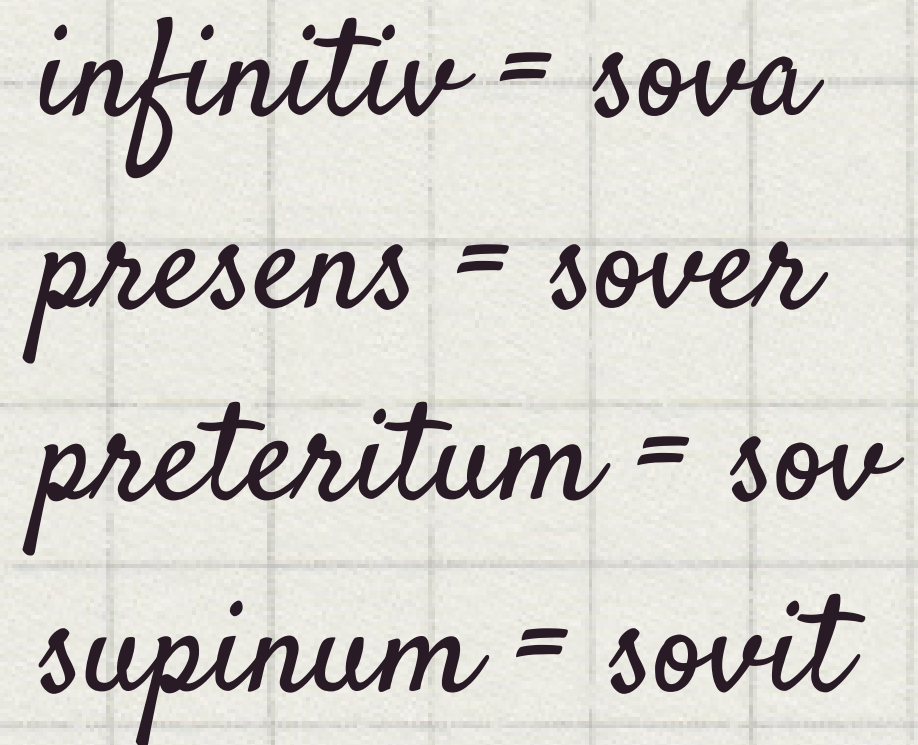 infinitiv = sova
presens = sover
preteritum = sov
supinum = sovit